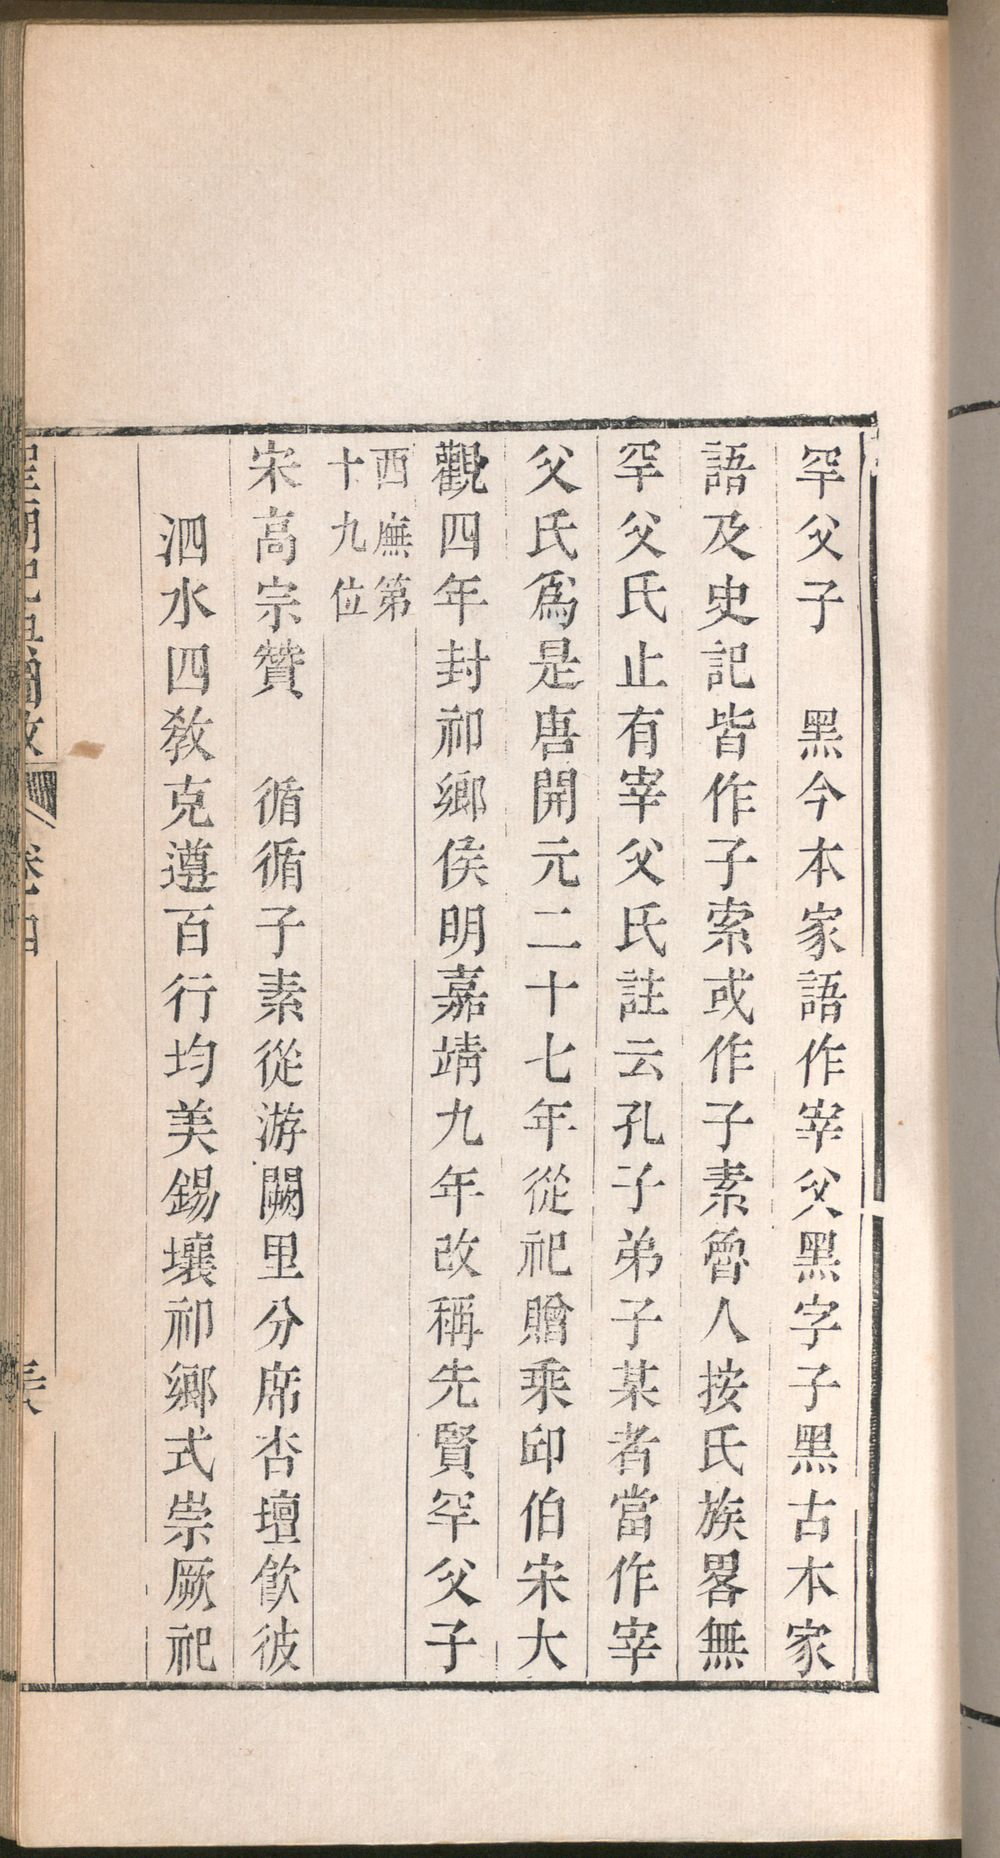 罕父子　黑今本家語作宰父黑字子黑古本家
語及史記皆作子索或作子素魯人按氏族畧無
罕父氏止有宰父氏註云孔子弟子某者當作宰
父氏爲是唐開元二十七年從祀贈乘邱伯宋大
觀四年封祁鄉侯明嘉靖九年改稱先賢罕父子
西廡第
十九位
宋高宗贊　循循子素從游闕里分席杏壇飮彼
泗水四敎克遵百行均美錫壤祁鄉式崇厥祀
卷四